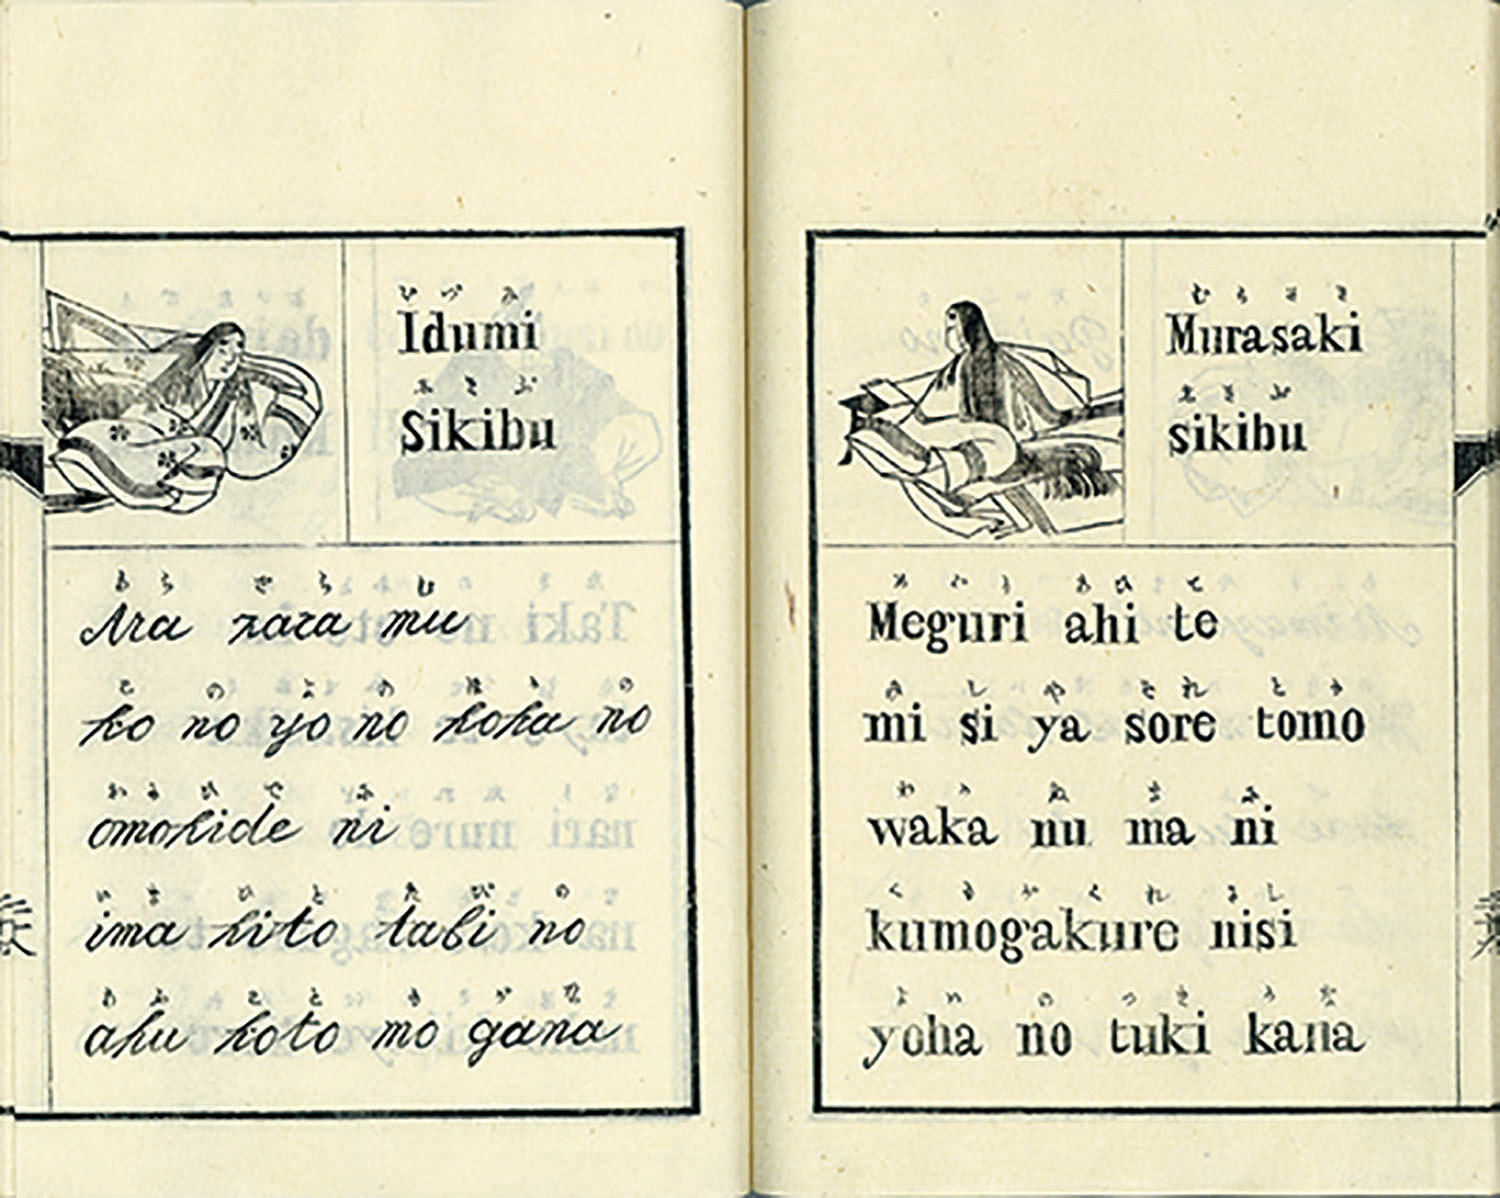 いづみ
Idumi
しきぶ
Sikibu
あらざらむ
Ara zara mu
このよのほかの
ko no yo no hoka no
おもひでに
omohide ni
いまひとたびの
ima hito tabi no
あふこともがな
ahu koto mo gana
むらさき
Murasaki
しきぶ
sikibu
めぐりあひて
Meguri ahi te
みしやそれとも
mi si ya sore tomo
わかぬまに
waka nu ma ni
くもがくれにし
kumogakure nisi
よはのつきかな
yoha no tuki kana